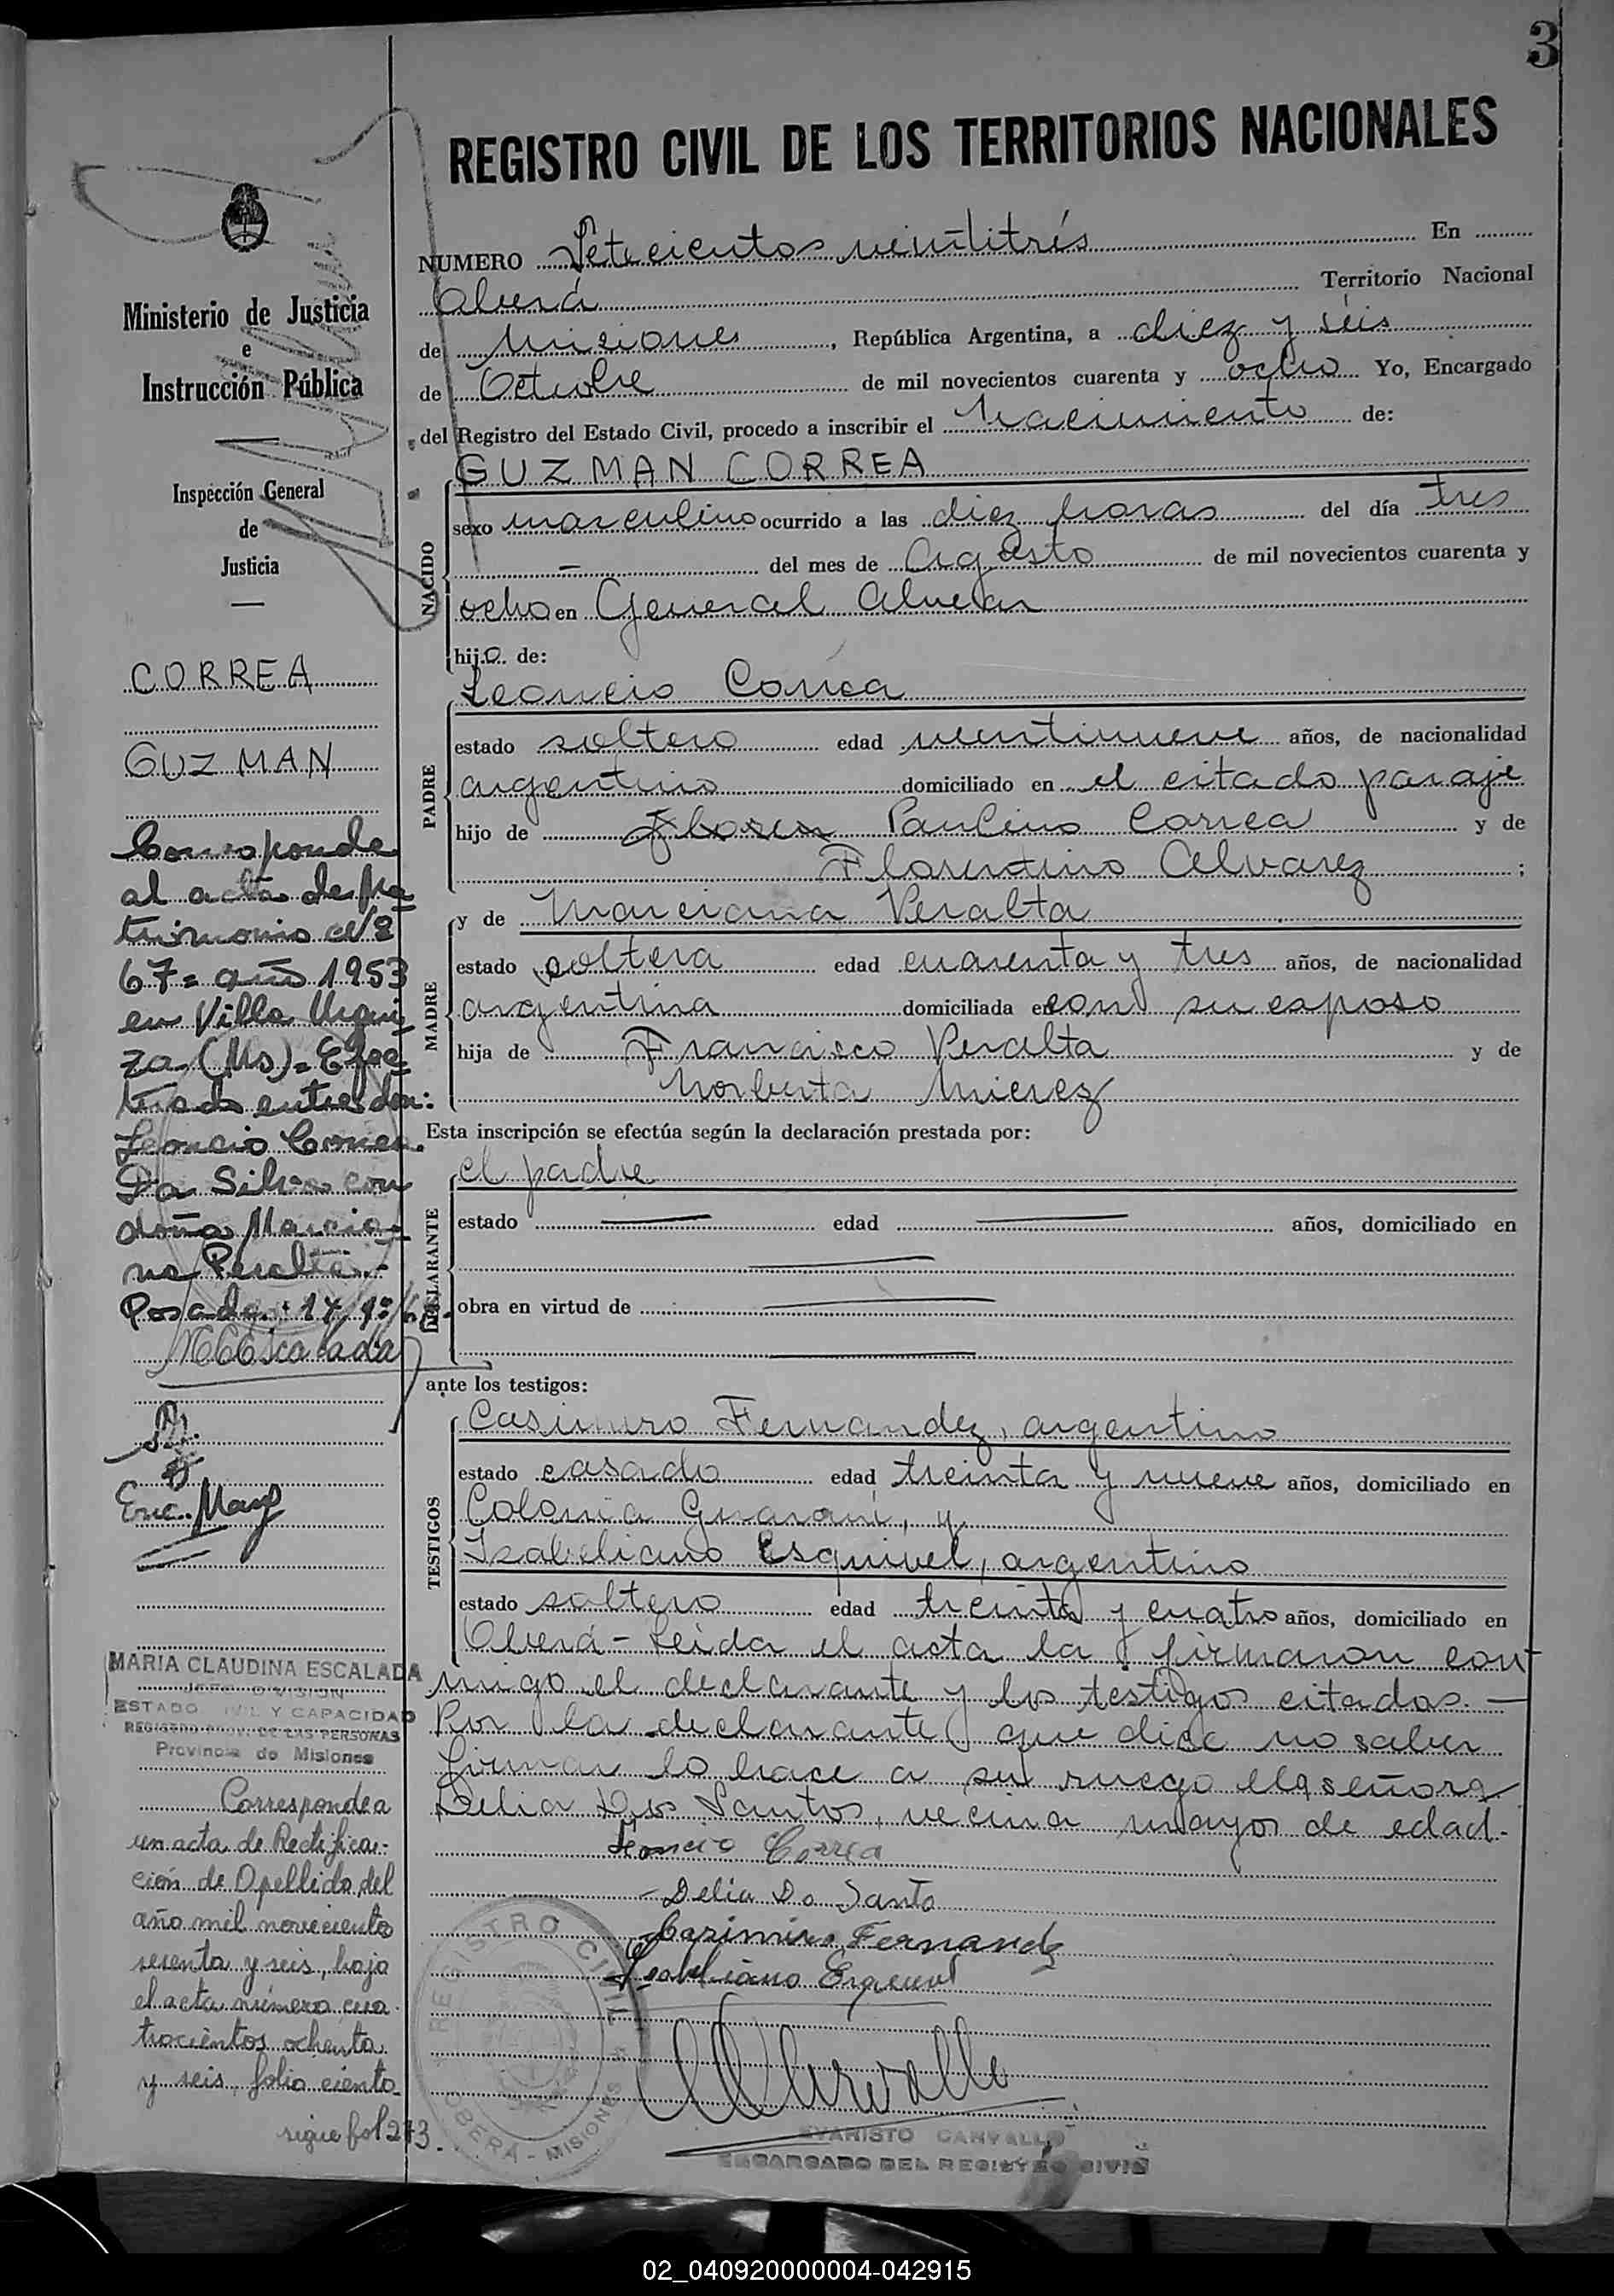 3
REGISTRO CIVIL DE LOS TERRITORIOS NACIONALES
NUMERO Setecientos veintitrés En
Oberá Territorio Nacional
de Misiones, República Argentina, a diez y séis
de Octubre de mil novecientos cuarenta y ocho Yo, Encargado
del Registro del Estado Civil, procedo a inscribir el Nacimiento de:
GUZMAN CORREA
NACIDO
sexo masculino ocurrido a las diez horas del día tres
— del mes de Agosto de mil novecientos cuarenta y
ocho en General Alvear
hijo de:
Leoncio Correa
PADRE
estado soltero edad veintinueve años, de nacionalidad
argentino domiciliado en el citado paraje
hijo de Paulino Correa y de
Florentino Alvarez ;
y de Marciana Peralta
MADRE
estado soltera edad cuarenta y tres años, de nacionalidad
argentina domiciliada en con su esposo
hija de Francisco Peralta y de
Norberta Mierez
Esta inscripción se efectúa según la declaración prestada por:
el padre
DECLARANTE
estado — edad — años, domiciliado en
—
obra en virtud de —
—
ante los testigos:
Casimiro Fernandez, argentino
TESTIGOS
estado casado edad treinta y nueve años, domiciliado en
Colonia Guaraní, y
Isabeliano Esquivel, argentino
estado soltero edad treinta y cuatro años, domiciliado en
Oberá - Leida el acta la firmaron con-
migo el declarante y los testigos citados. —
Por la declarante que dice no saber
firmar lo hace a su ruego la señora
Delia Dos Santos, vecina mayor de edad.-
Leoncio Correa
Delia Do Santo
Casimiro Fernandz
Isabeliano Esquivel
REGISTRO CIVIL
OBERA - MISIONES
EVARISTO CARVALLO
ENCARGADO DEL REGISTRO CIVIL
Ministerio de Justicia
e
Instrucción Pública
Inspección General
de
Justicia
CORREA
GUZMAN
Corresponde
al acta de ma
trimonio Nº
67= año 1953
en Villa Urqui
za (Ms)= Efec
tuado entre don:
Leoncio Correa
Da Silva con
doña Marcia-
na Peralta.-
Posadas
MCEscalada
Enc. Mayo
MARIA CLAUDINA ESCALADA
JEFE DIVISION
ESTADO CIVIL Y CAPACIDAD
REGISTRO PROV. DE LAS PERSONAS
Provincia de Misiones
Corresponde a
un acta de Rectifica-
ción de Apellido del
año mil novecientos
sesenta y seis, bajo
el acta número cua-
trocientos ochenta
y seis, folio ciento
sigue fol 273.
02_040920000004-042915